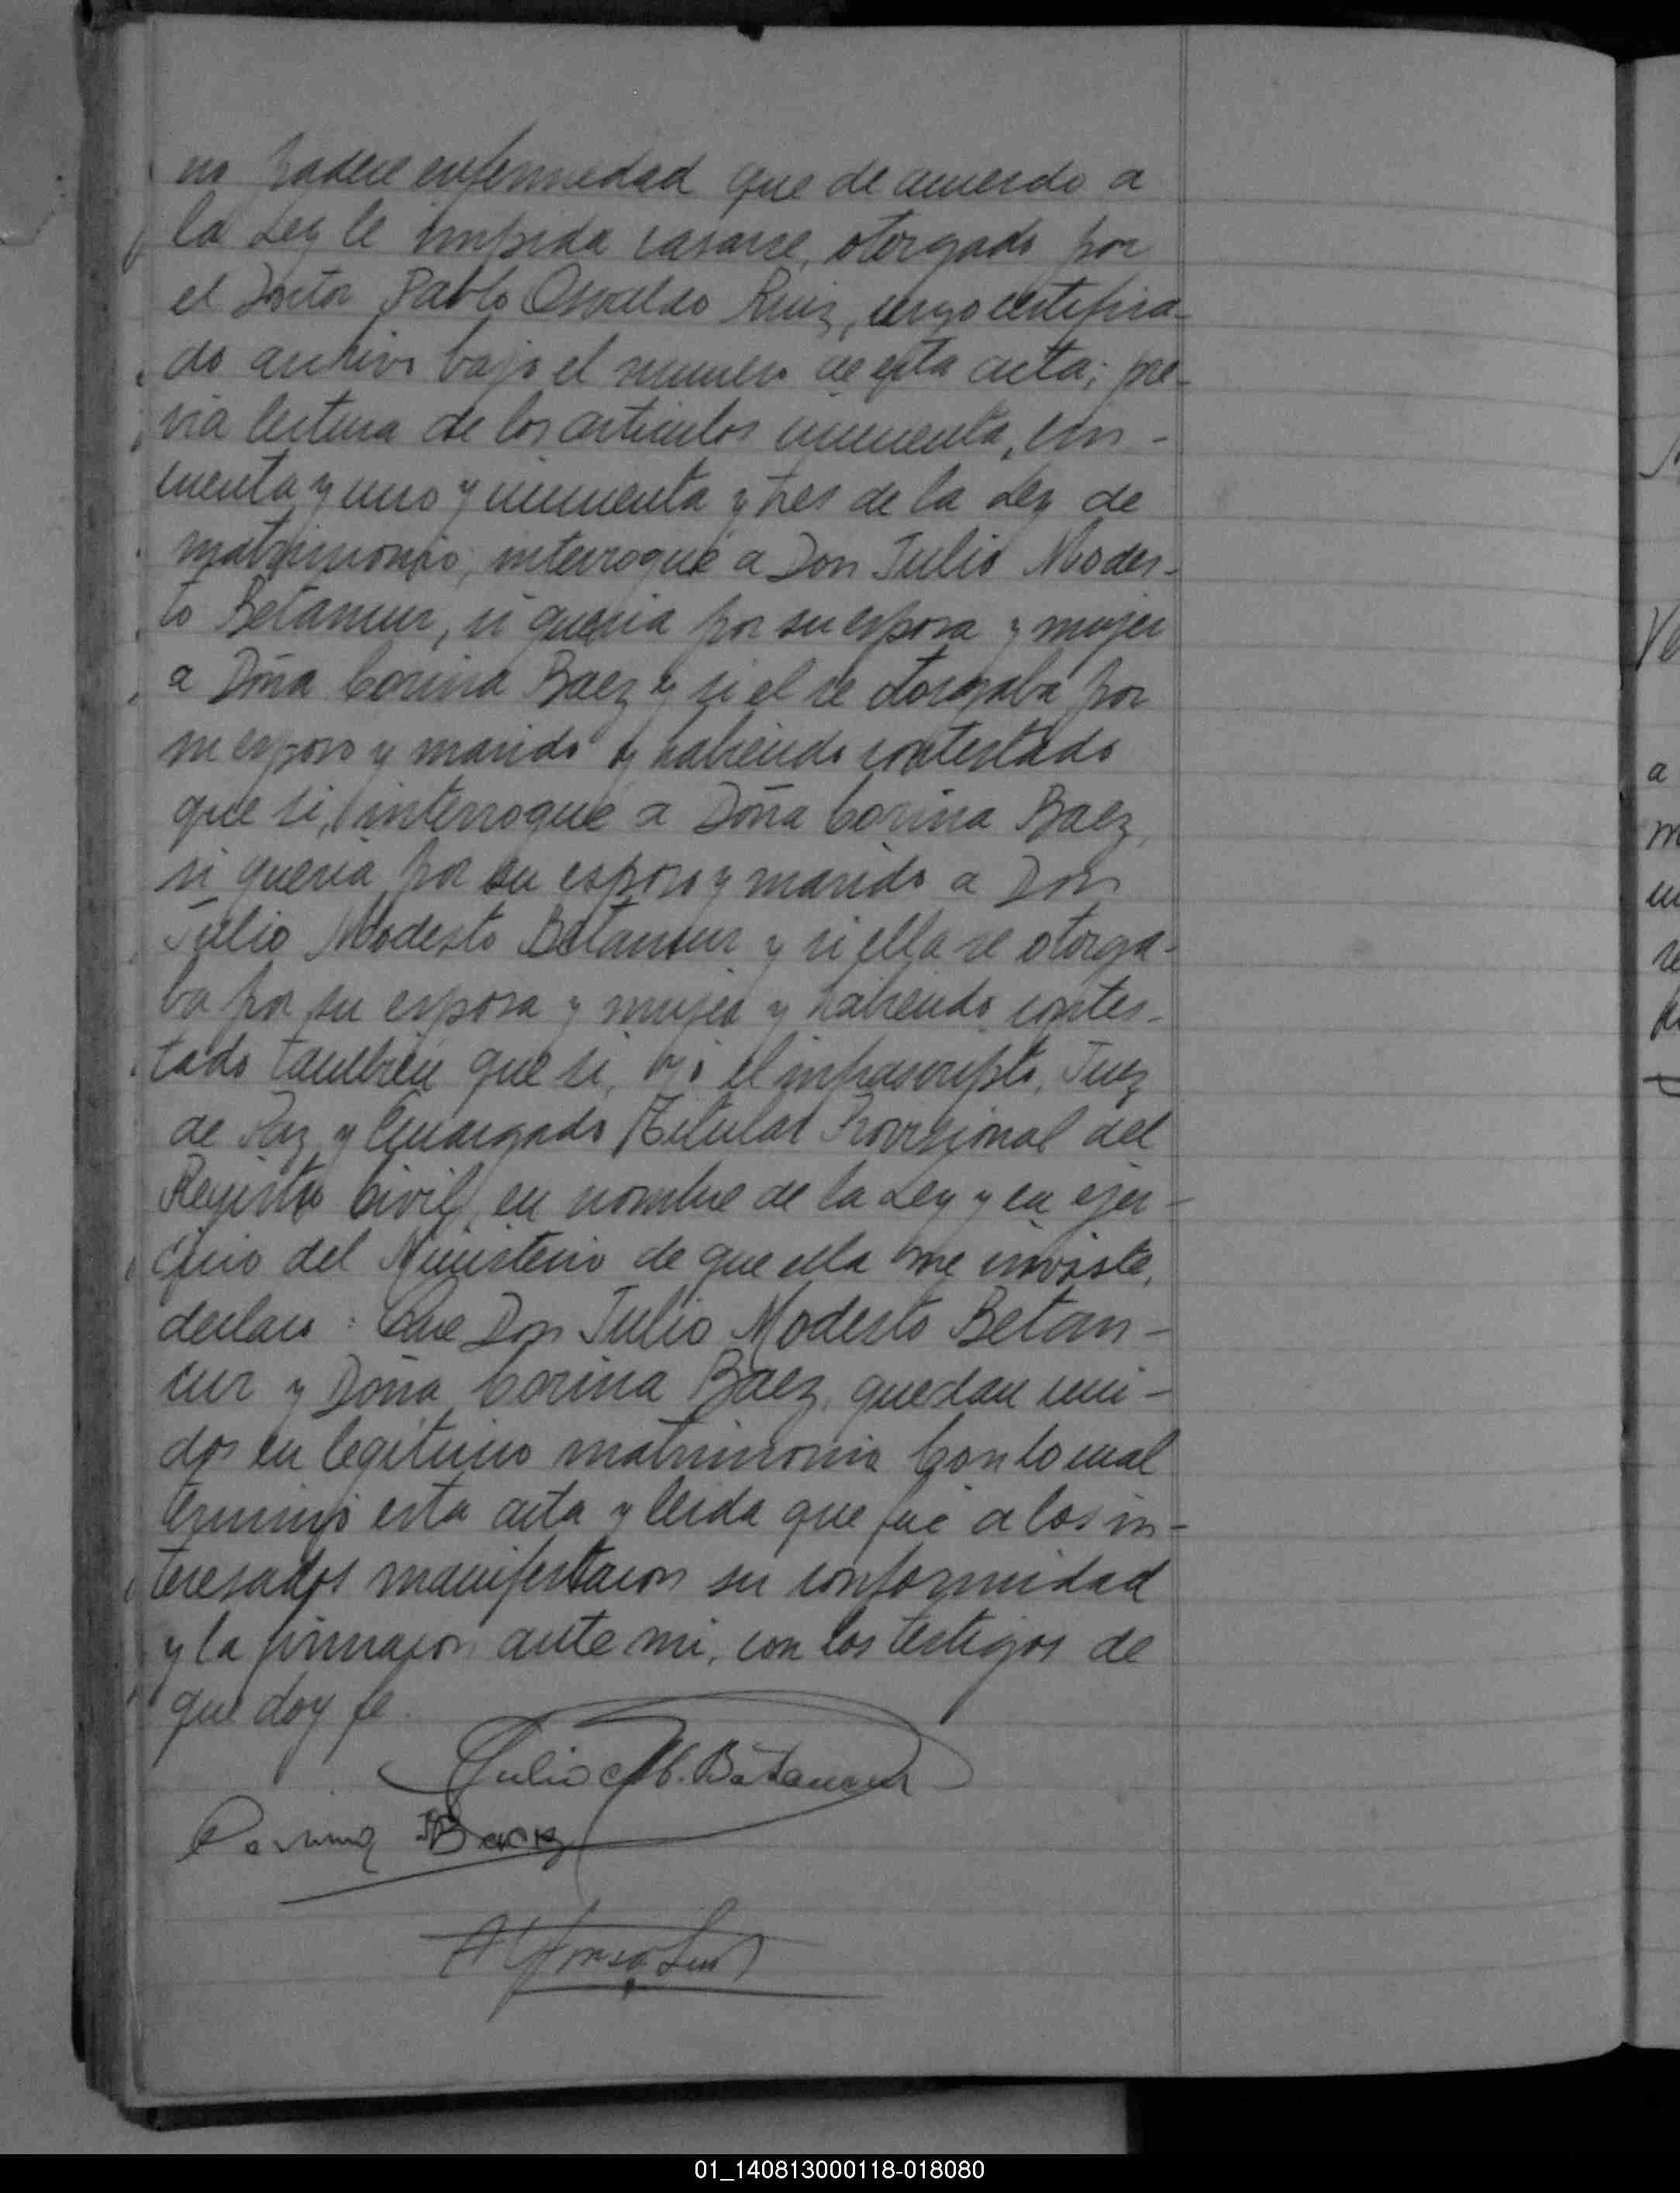 no padece enfermedad que de acuerdo a
la Ley le impida casarse, otorgado por
el Doctor Pablo Osvaldo Ruiz, cuyo certifica-
do archivo bajo el numero de esta acta; pre-
via lectura de los articulos cincuenta, cin-
cuenta y uno y cincuenta y tres de la Ley de
matrimonio, interrogué a Don Julio Modes-
to Betancur, si queria por su esposa y mujer
a Doña Corina Baez y si el se otorgaba por
su esposo y marido y habiendo contestado
que si, interrogué a Doña Corina Baez,
si queria por su esposo y marido a Don
Julio Modesto Betancur y si ella se otorga-
ba por su esposa y mujer y habiendo contes-
tado tambien que si, yo el infrascripto, Juez
de Paz y Encargado Titular Provisional del
Registro Civil, en nombre de la Ley y en ejer-
cicio del Ministerio de que ella me inviste,
declaro: Que Don Julio Modesto Betan-
cur y Doña Corina Baez, quedan uni-
dos en legitimo matrimonio Con lo cual
terminó esta acta y leida que fué a los in-
teresados manifestaron su conformidad
y la firmaron ante mi, con los testigos de
que doy fe.
Julio M. Betancur
Corina Baez
Alfonso
a
01_140813000118-018080